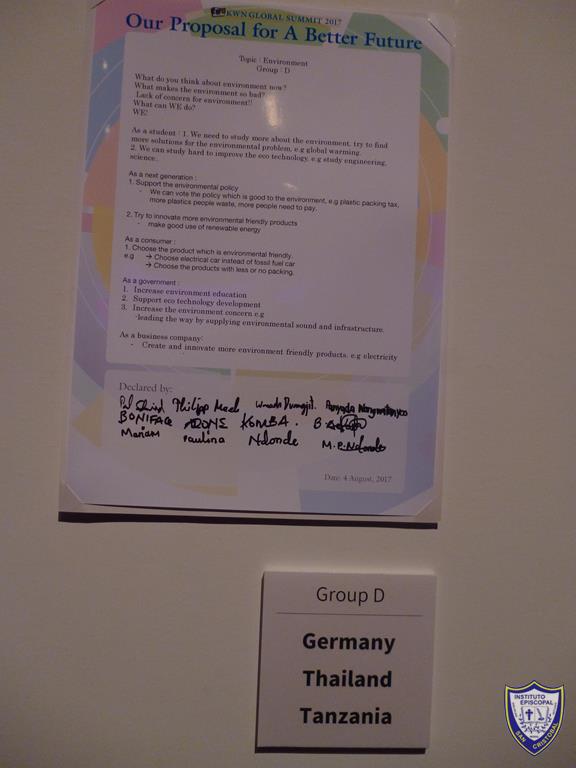 KWN GLOBAL SUMMIT 2017
Our Proposal for A Better Future
Topic : Environment
Group : D
What do you think about environment now?
What makes the environment so bad?
Lack of concern for environment!!
What can WE do?
WE!
As a student : 1. We need to study more about the environment, try to find
more solutions for the environmental problem, e.g global warming.
2. We can study hard to improve the eco technology, e.g study engineering,
science..
As a next generation :
1. Support the environmental policy
- We can vote the policy which is good to the environment, e.g plastic packing tax,
more plastics people waste, more people need to pay.
2. Try to innovate more environmental friendly products
- make good use of renewable energy
As a consumer :
1. Choose the product which is environmental friendly.
e.g → Choose electrical car instead of fossil fuel car
→ Choose the products with less or no packing.
As a government :
1. Increase environment education
2. Support eco technology development
3. Increase the environment concern e.g
-leading the way by supplying environmental sound and infrastructure.
As a business company:
- Create and innovate more environment friendly products. e.g electricity
Declared by:
Philipp
KOMBA.
Mariam Paulina Ndonde M.P.Ndonde
Date: 4 August, 2017
Group D
Germany
Thailand
Tanzania
INSTITUTO
EPISCOPAL
SAN CRISTOBAL